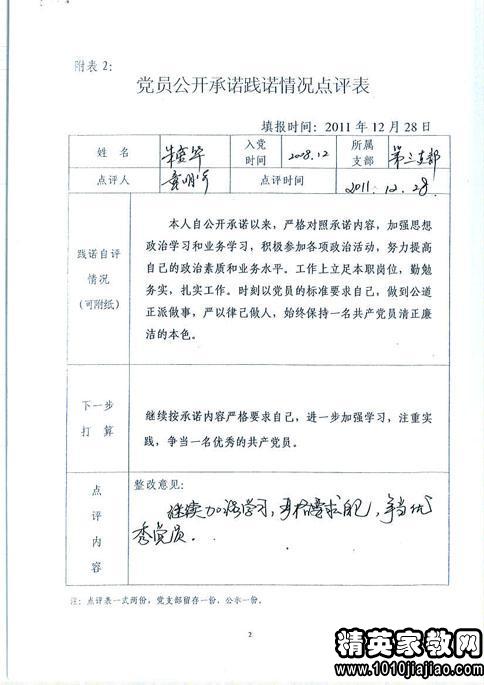 附表2:
党员公开承诺践诺情况点评表
填报时间：2011年12月28日
姓名
入党时间
2008.12
所属支部
第三支部
点评人
点评时间
2011.12.28
践诺自评情况（可附纸）
本人自公开承诺以来，严格对照承诺内容，加强思想
政治学习和业务学习，积极参加各项政治活动，努力提高
自己的政治素质和业务水平。工作上立足本职岗位，勤勉
务实，扎实工作。时刻以党员的标准要求自己，做到公道
正派做事，严以律己做人，始终保持一名共产党员清正廉
洁的本色。
下一步打算
继续按承诺内容严格要求自己，进一步加强学习，注重实
践，争当一名优秀的共产党员。
点评内容
整改意见：
继续加强学习，严格要求自己，争当优
秀党员.
注：点评表一式两份，党支部留存一份，公示一份。
2
精英家教网
www.1010jiajiao.com